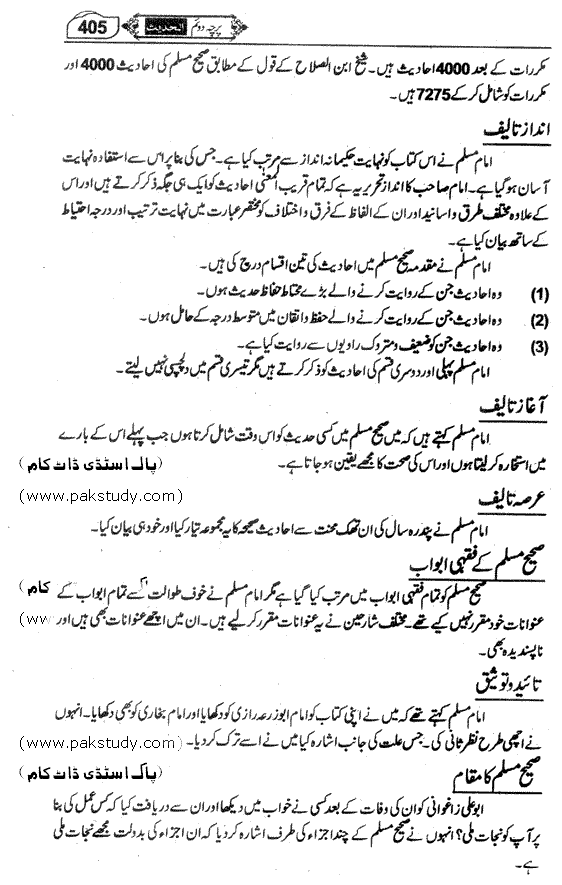 405 الحدیث پرچہ دوئم
مکررات کے بعد 4000 احادیث ہیں۔ شیخ ابن الصلاح کے قول کے مطابق صحیح مسلم کی احادیث 4000 اور
مکررات کو شامل کر کے 7275 ہیں۔
انداز تالیف
امام مسلم نے اس کتاب کو نہایت حکیمانہ انداز سے مرتب کیا ہے۔ جس کی بنا پر اس سے استفادہ نہایت
آسان ہو گیا ہے۔ امام صاحب کا انداز تحریر یہ ہے کہ تمام قریب المعنیٰ احادیث کو ایک ہی جگہ ذکر کرتے ہیں اور اس
کے علاوہ مختلف طرق و اسانید اور ان کے الفاظ کے فرق و اختلاف کو مختصر عبارت میں نہایت ترتیب اور درجہ احتیاط
کے ساتھ بیان کیا ہے۔
امام مسلم نے مقدمہ صحیح مسلم میں احادیث کی تین اقسام درج کی ہیں۔
(1) وہ احادیث جن کے روایت کرنے والے بڑے محتاط حفاظ حدیث ہوں۔
(2) وہ احادیث جن کے روایت کرنے والے حفظ و اتقان میں متوسط درجہ کے حامل ہوں۔
(3) وہ احادیث جن کو ضعیف و متروک راویوں سے روایت کیا ہے۔
امام مسلم پہلی اور دوسری قسم کی احادیث کو ذکر کرتے ہیں مگر تیسری قسم میں دلچسپی نہیں لیتے۔
آغاز تالیف
امام مسلم کہتے ہیں کہ میں صحیح مسلم میں کسی حدیث کو اس وقت شامل کرتا ہوں جب پہلے اس کے بارے
میں استخارہ کر لیتا ہوں اور اس کی صحت کا مجھے یقین ہو جاتا ہے۔ (پاک اسٹڈی ڈاٹ کام)
عرصہ تالیف (www.pakstudy.com)
امام مسلم نے پندرہ سال کی ان تھک محنت سے احادیث صحیحہ کا یہ مجموعہ تیار کیا اور خود ہی بیان کیا۔
صحیح مسلم کے فقہی ابواب
صحیح مسلم کو تمام فقہی ابواب میں مرتب کیا گیا ہے مگر امام مسلم نے خوف طوالت سے تمام ابواب کے کام)
عنوانات خود مقرر نہیں کیے تھے۔ مختلف شارحین نے یہ عنوانات مقرر کر لیے ہیں۔ ان میں اچھے عنوانات بھی ہیں اور (ww
ناپسندیدہ بھی۔
تائید و توثیق
امام مسلم کہتے تھے کہ میں نے اپنی کتاب کو امام ابوزرعہ رازی کو دکھایا اور امام بخاری کو بھی دکھایا۔ انہوں
نے اچھی طرح نظر ثانی کی۔ جس علت کی جانب اشارہ کیا میں نے اسے ترک کر دیا۔ (www.pakstudy.com)
صحیح مسلم کا مقام (پاک اسٹڈی ڈاٹ کام)
ابو علی زاغوانی کو ان کی وفات کے بعد کسی نے خواب میں دیکھا اور ان سے دریافت کیا کہ کس عمل کی بنا
پر آپ کو نجات ملی؟ انہوں نے صحیح مسلم کے چند اجزاء کی طرف اشارہ کر دیا کہ ان اجزاء کی بدولت مجھے نجات ملی
ہے۔